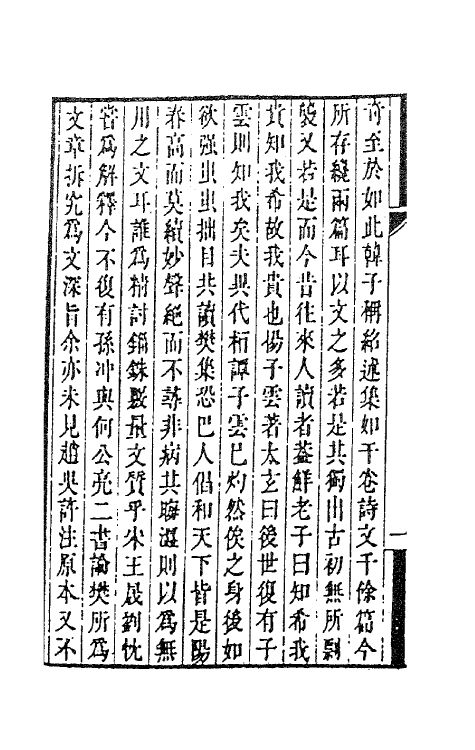 竒至於如此韓子稱紹述集如干卷詩文千餘篇今
所存纔兩篇耳以文之多若是其獨出古初無所剽
襲又若是而今昔往來人讀者蓋鮮老子曰知希我
貴知我希故我貴也揚子雲著太玄曰後世復有子
雲則知我矣夫異代桓譚子雲已灼然俟之身後如
欲强虫虫拙目共讀樊集恐巴人倡和天下皆是陽
春高而莫續妙聲絶而不尋非病其晦澀則以為無
用之文耳誰為精討錙銖覈量文質乎宋王晟劉忱
嘗為解釋今不復有孫冲與何公亮二書論樊所為
文章拆究為文深旨余亦未見趙吳許注原本又不
一